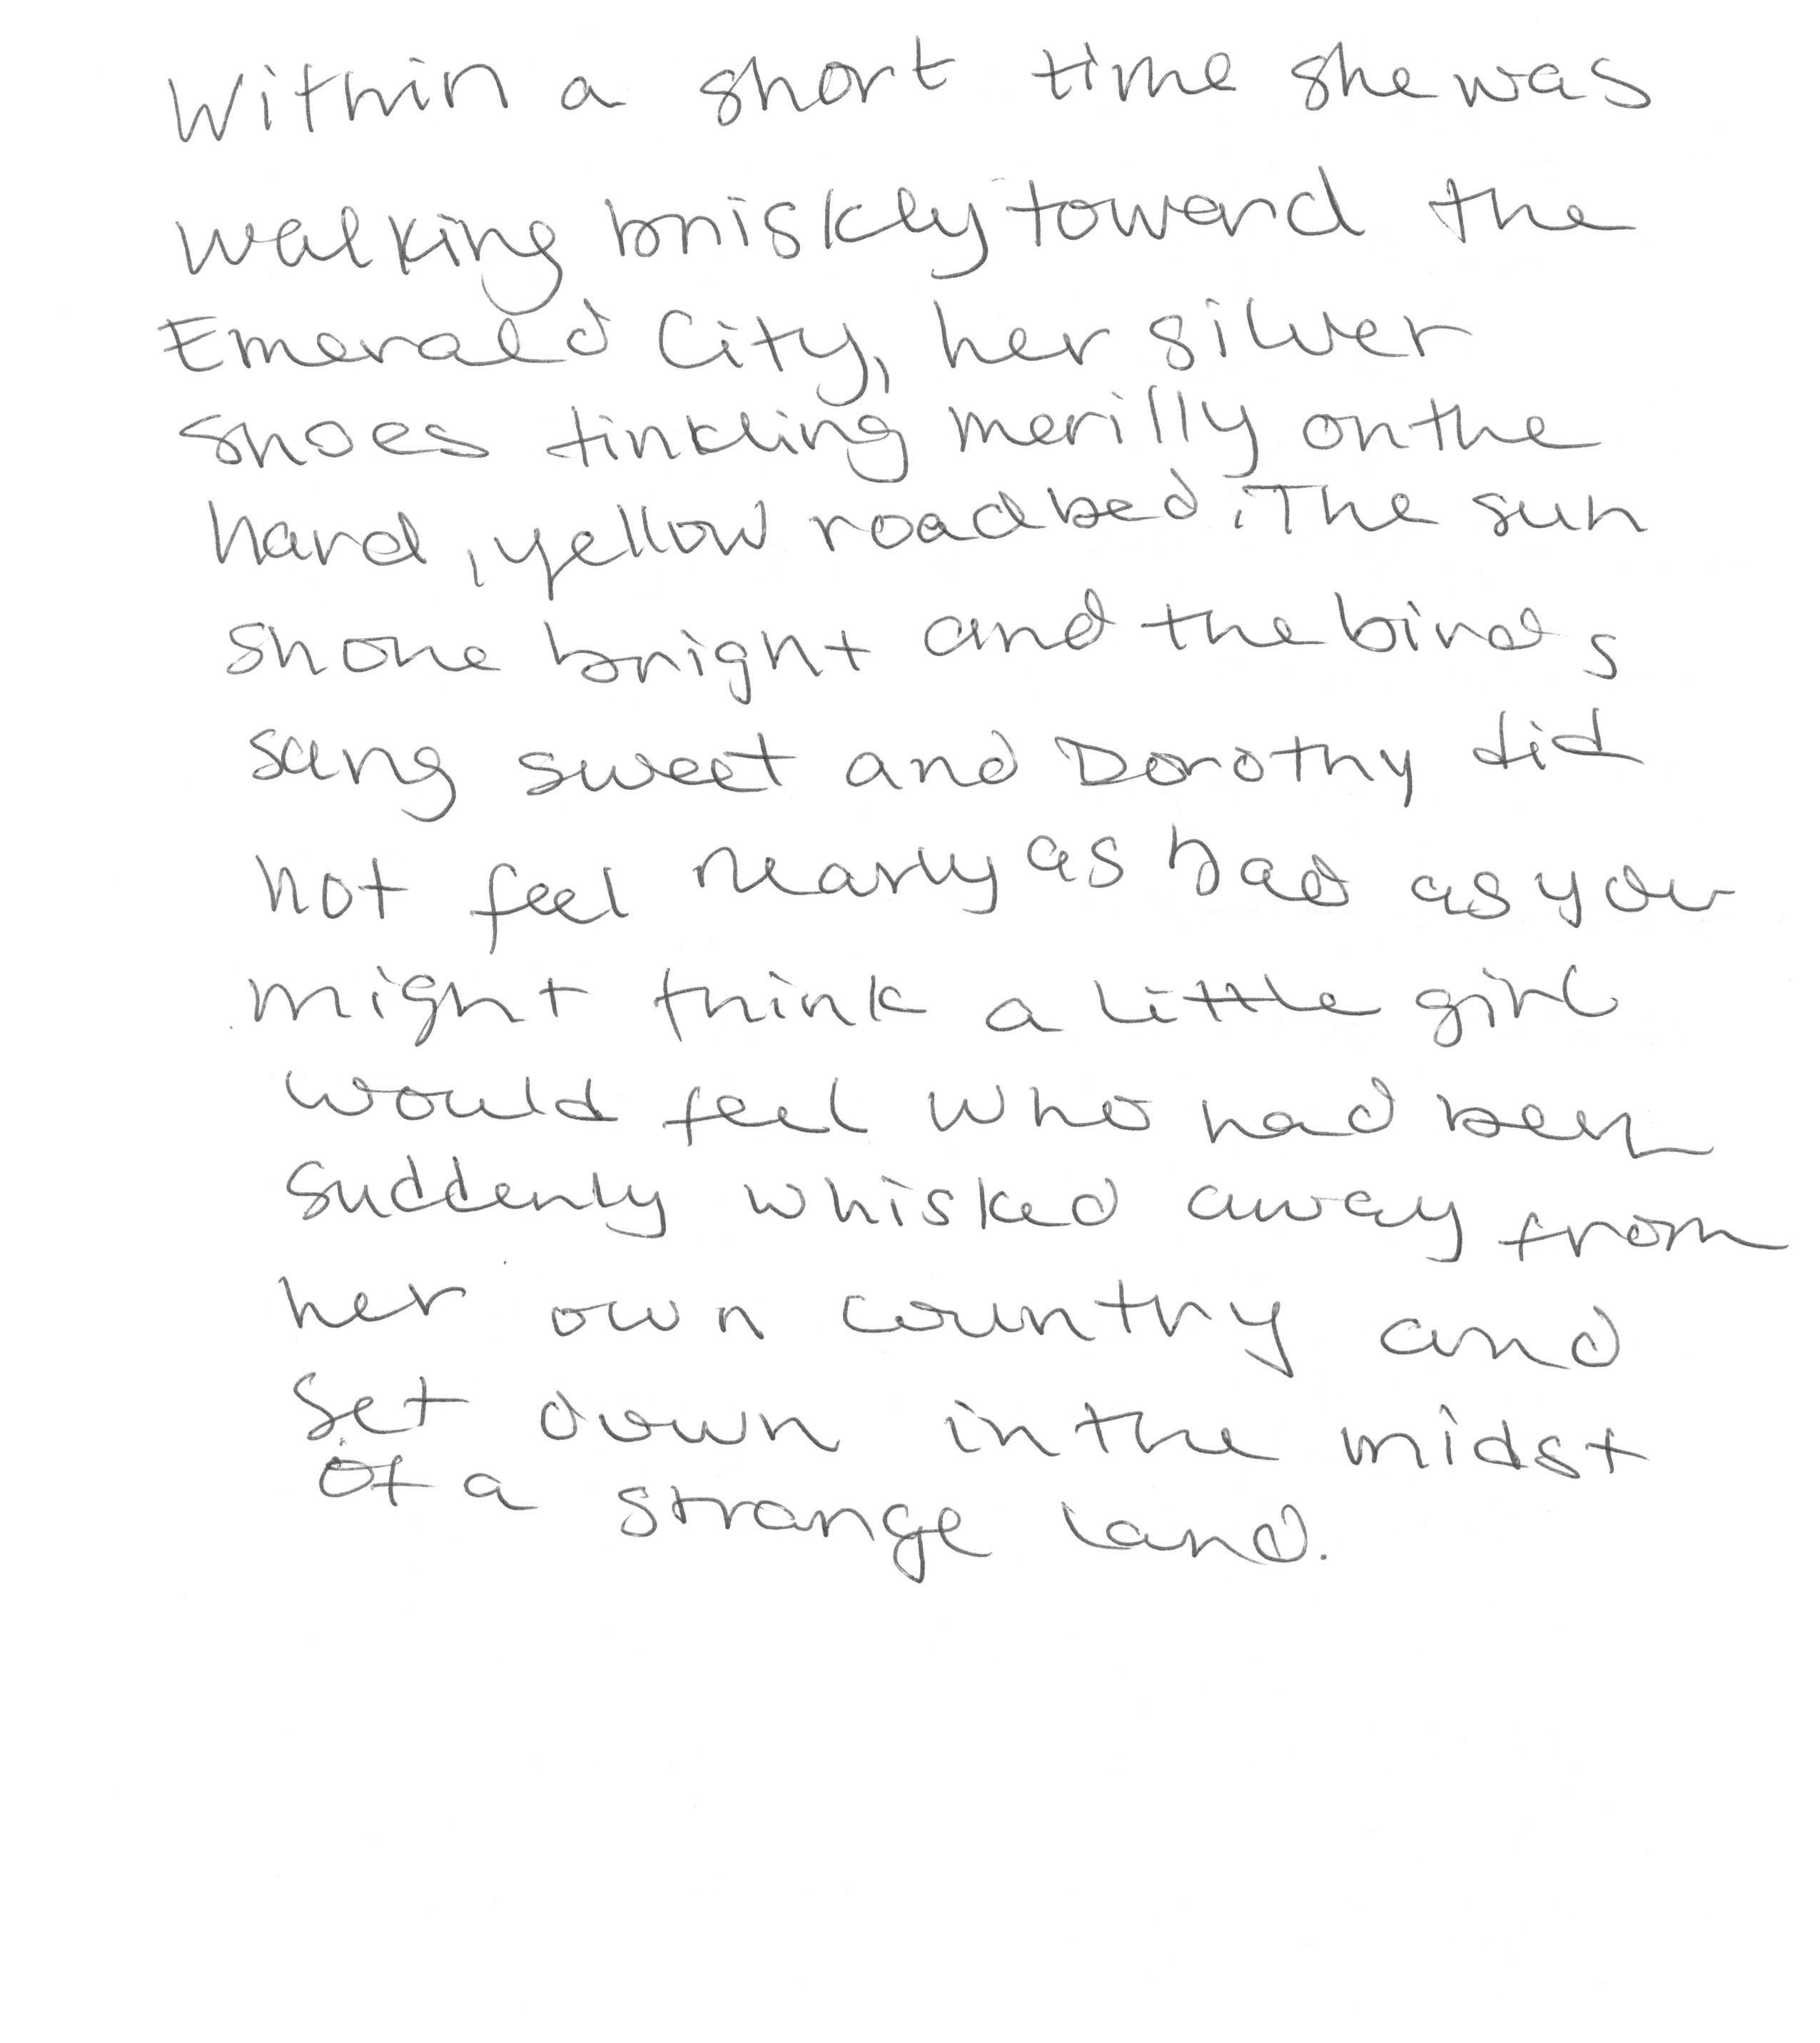 Within a short time she was
walking briskly toward the
Emerald City, her silver
shoes tinkling merilly on the
hard, yellow roadbed. The sun
shone bright and the birds
sang sweet and Dorothy did
not feel nearly as bad as you
might think a little girl
would feel who had been
suddenly whisked away from
her own country and
set down in the midst
of a strange land.